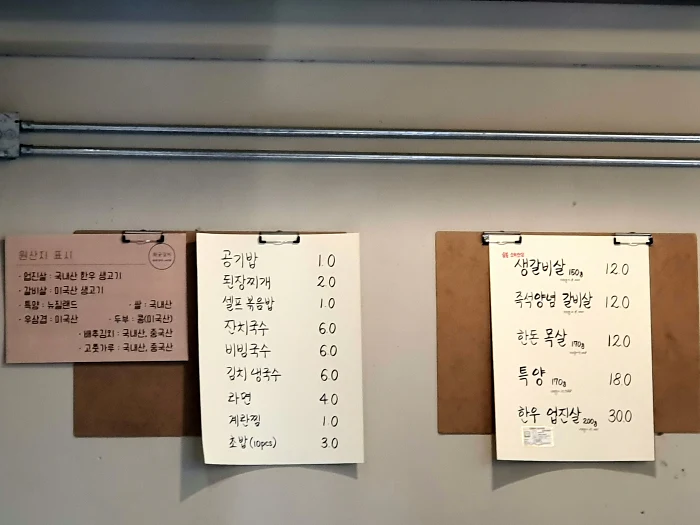 원산지 표시
· 업진살 : 국내산 한우 생고기
· 갈비살 : 미국산 생고기
· 특양 : 뉴질랜드 · 쌀 : 국내산
· 우삼겹 : 미국산 · 두부 : 콩(미국산)
· 배추김치 : 국내산, 중국산
· 고춧가루 : 국내산, 중국산
공기밥 1.0
된장찌개 2.0
셀프 볶음밥 1.0
잔치국수 6.0
비빔국수 6.0
김치 냉국수 6.0
라면 4.0
계란찜 1.0
초밥 (10pcs) 3.0
생갈비살 150g 12.0
즉석양념 갈비살 12.0
한돈 목살 170g 12.0
특양 170g 18.0
한우 업진살 200g 30.0